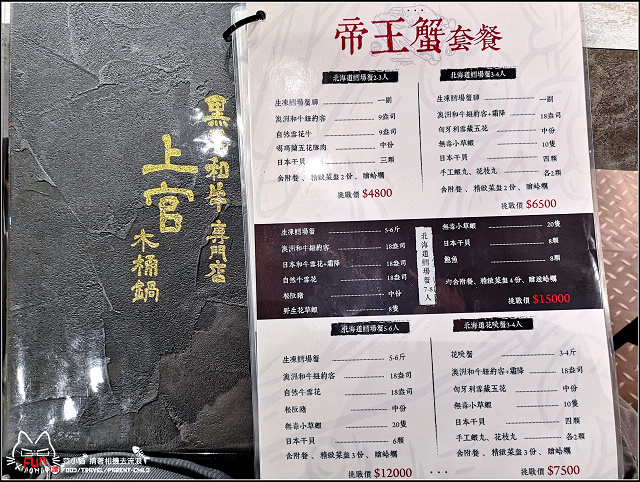 黑毛和牛專門店
上官
木桶鍋
帝王蟹套餐
北海道鱈場蟹2-3人
生凍鱈場蟹腳 一副
澳洲和牛紐約客 9盎司
自然雪花牛 9盎司
噶瑪蘭五花豚肉 中份
日本干貝 三顆
含附餐、精緻菜盤2份、贈蛤蠣
挑戰價 $4800
北海道鱈場蟹3-4人
生凍鱈場蟹腳 一副
澳洲和牛紐約客+霜降 18盎司
匈牙利雪藏五花 中份
無毒小草蝦 10隻
日本干貝 四顆
手工蝦丸、花枝丸 各2顆
含附餐、精緻菜盤2份、贈蛤蠣
挑戰價 $6500
北海道鱈場蟹7-8人
生凍鱈場蟹 5-6斤
澳洲和牛紐約客 18盎司
日本和牛雪花+霜降 18盎司
自然牛雪花 18盎司
松阪豬 中份
野生花草蝦 8隻
無毒小草蝦 20隻
日本干貝 8顆
鮑魚 8顆
內含附餐、精緻菜盤4份、贈送蛤蠣
挑戰價 $15000
北海道鱈場蟹5-6人
生凍鱈場蟹 5-6斤
澳洲和牛紐約客 18盎司
自然牛雪花 18盎司
松阪豬 中份
無毒小草蝦 20隻
日本干貝 6顆
含附餐、精緻菜盤3份、贈蛤蠣
挑戰價 $12000
北海道花咲蟹3-4人
花咲蟹 3-4斤
澳洲和牛紐約客+霜降 18盎司
匈牙利雪藏五花 中份
無毒小草蝦 10隻
日本干貝 四顆
手工蝦丸、花枝丸 各2顆
含附餐、精緻菜盤3份、贈蛤蠣
挑戰價 $7500
FUN
FOOD/TRAVEL/PARENT-CHILD